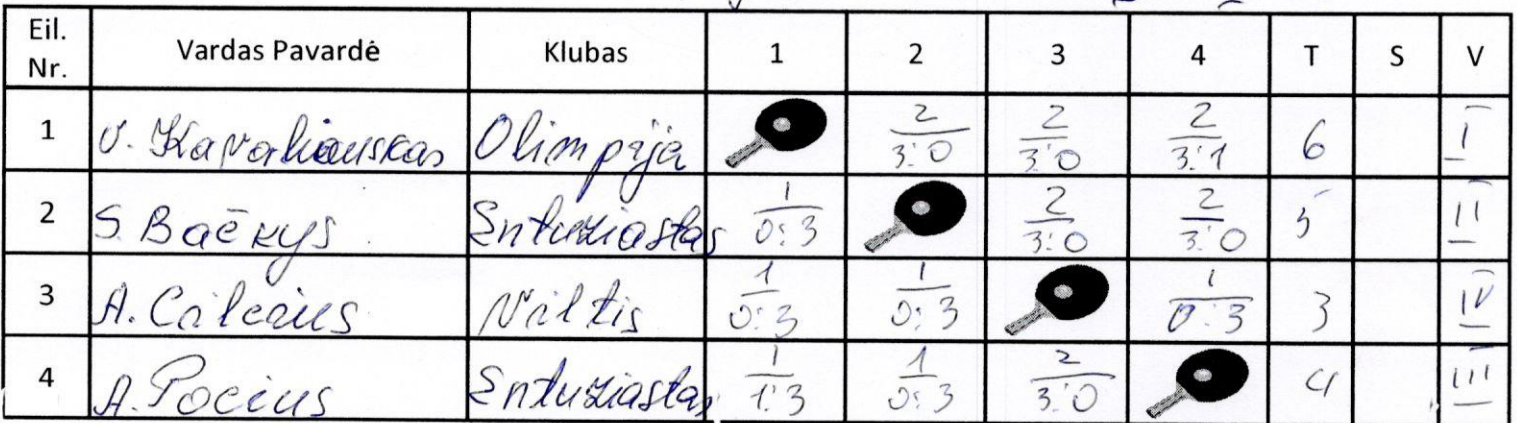 Eil. Nr. Vardas Pavardė Klubas 1 2 3 4 T S V
1 V. Kavaliauskas Olimpija 2 3:0 2 3:0 2 3:1 6 I
2 S. Bačkys Entuziastas 1 0:3 2 3:0 2 3:0 5 II
3 A. Viltis 1 0:3 1 0:3 1 0:3 3 IV
4 A. Pocius Entuziastas 1 1:3 1 0:3 2 3:0 4 III